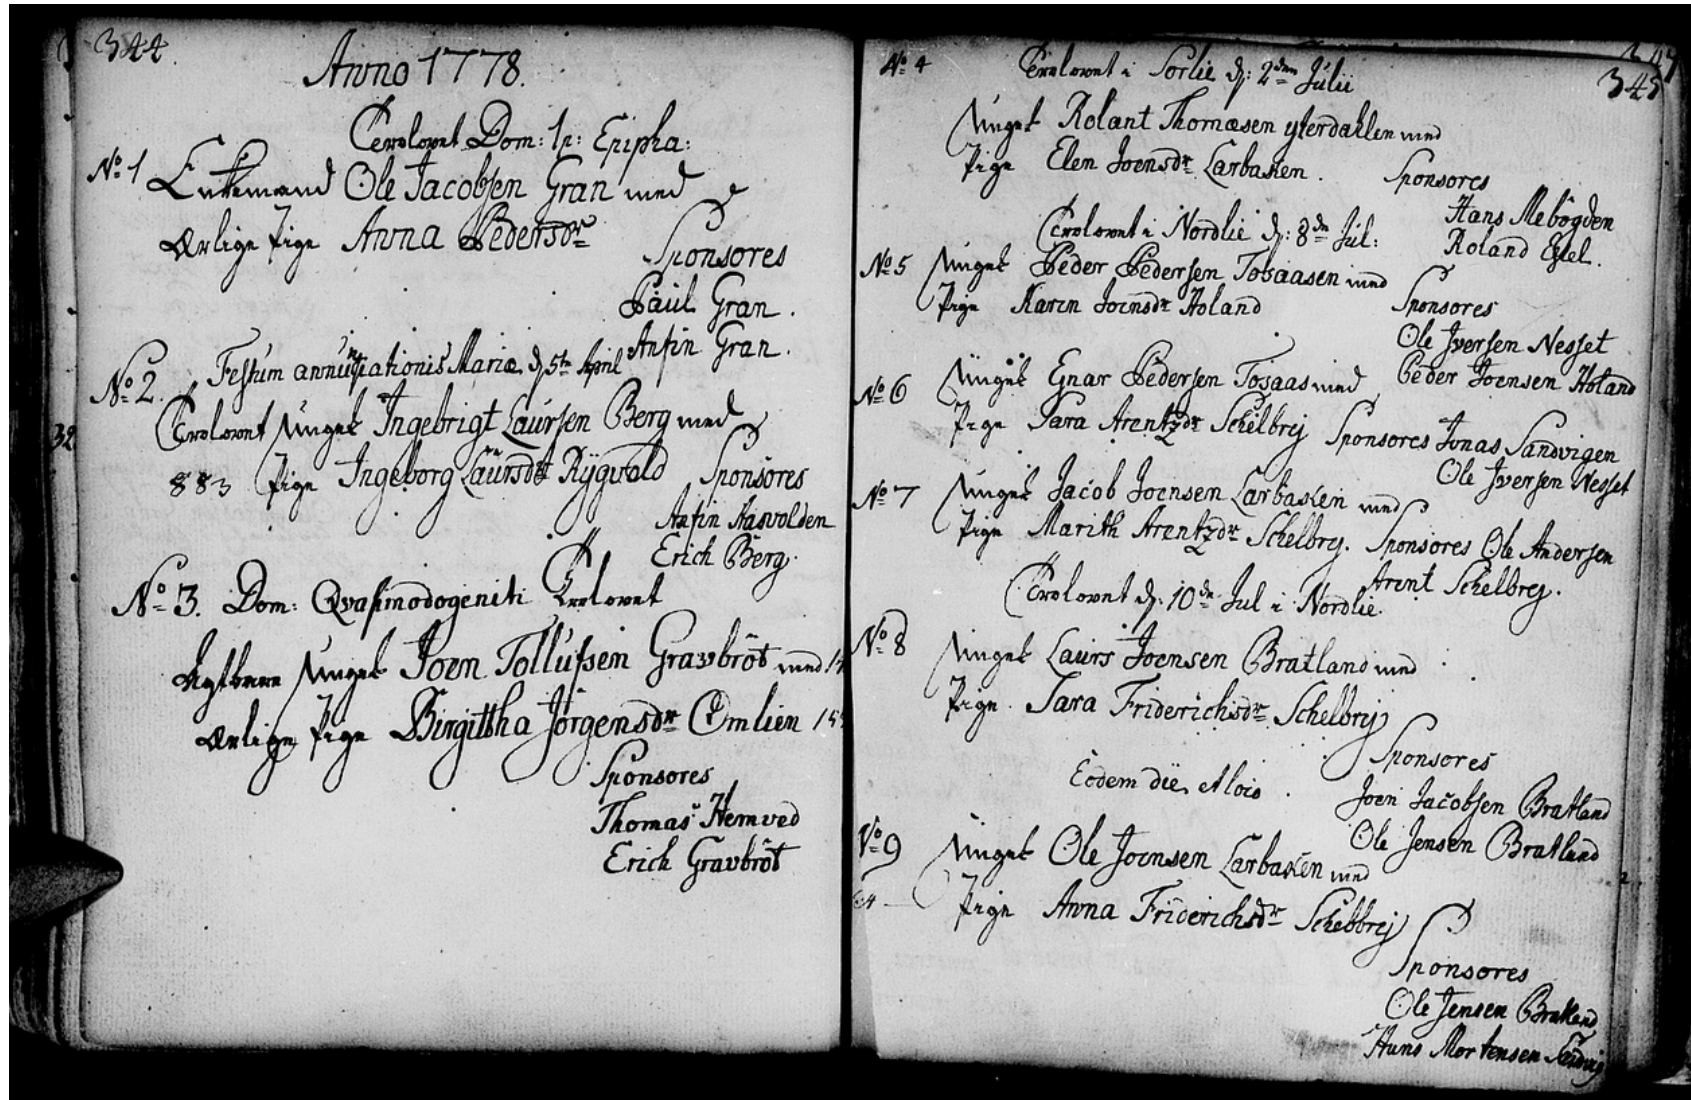 344.
Anno 1778.
Trolovet Dom: 1 p: Epipha:
No 1 Enkemand Ole Jacobsen Gran med
Ærlige Pige Anna Pedersdr
Sponsores
Paul Gran.
Anfin Gran.
No 2. Festum annuntiationis Mariæ d 5te April
Trolovet Unget Ingebrigt Laursen Berg med
883 Pige Ingeborg Laursdr Rÿgvold Sponsores
Anfin Aasvolden
Erich Berg.
No 3. Dom: Qvasimodogeniti Trolovet
Agtbare Unget Joen Tollufsen Gravbrôt med
Ærlige Pige Birgittha Jörgensdr Omlien
Sponsores
Thomas Hemved
Erich Gravbrôt
32
345
No 4 Trolovet i Sorlie d: 2den Julii
Unget Rolant Thomæsen yterdahlen med
Pige Elen Joensdr Larbaken. Sponsores
Hans Mebögden
Roland Estel.
Trolovet i Nordlie d: 8de Jul:
No 5 Unget Peder Pedersen Tosaasen med
Pige Karen Joensdr Holand Sponsores
Ole Iversen Nesset
Peder Joensen Holand
No 6 Unget Enar Pedersen Tosaas med
Pige Sara Arentzdr Schelbrej Sponsores Jonas Sandvigen
Ole Iversen Nesset
No 7 Unget Jacob Joensen Larbaken med
Pige Marith Arentzdr Schelbrej. Sponsores Ole Andersen
Arent Schelbrej.
Trolovet d: 10de Jul i Nordlie.
No 8 Unget Laurs Joensen Bratland med
Pige Sara Friderichsdr Schelbrej
Sponsores
Joen Jacobsen Bratland
Ole Jensen Bratland
Eodem die et loco.
No 9 Unget Ole Joensen Larbaken med
Pige Anna Friderichsdr Schelbrej
Sponsores
Ole Jensen Bratland
Hans Mortensen Sandvig